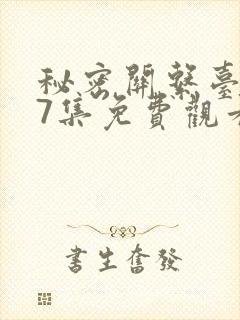 秘密關繫臺
7集免費觀看
書生奮發